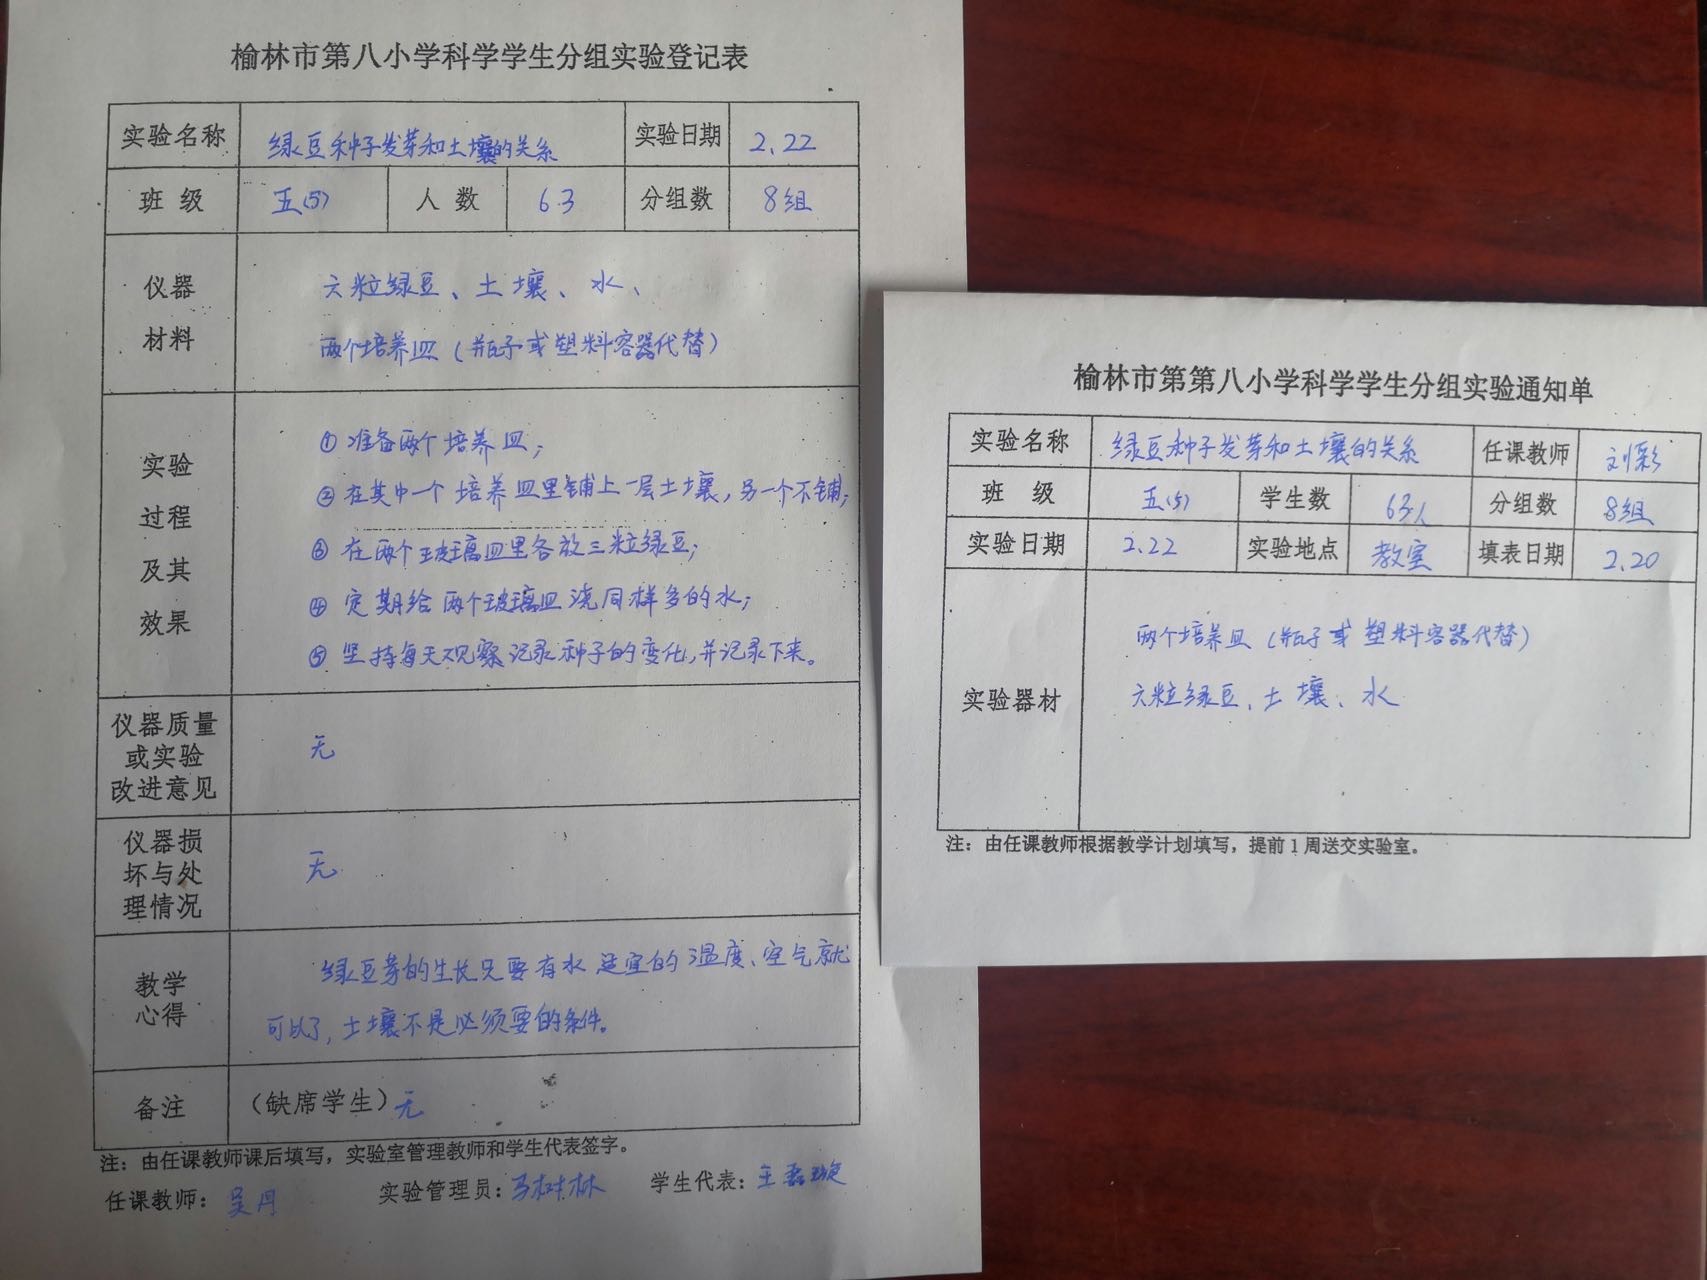 榆林市第八小学科学学生分组实验登记表
实验名称 绿豆种子发芽和土壤的关系 实验日期 2.22
班 级 五(5) 人 数 63 分组数 8组
仪器
材料
六粒绿豆、土壤、水、
两个培养皿（瓶子或塑料容器代替）
实验
过程
及其
效果
①准备两个培养皿；
②在其中一个培养皿里铺上一层土壤，另一个不铺；
③在两个玻璃皿里各放三粒绿豆；
④定期给两个玻璃皿浇同样多的水；
⑤坚持每天观察记录种子的变化，并记录下来。
仪器质量
或实验
改进意见
无
仪器损
坏与处
理情况
无
教学
心得
绿豆芽的生长只要有水 适宜的温度、空气就
可以了，土壤不是必须要的条件。
备注 （缺席学生）无
注：由任课教师课后填写，实验室管理教师和学生代表签字。
任课教师：吴丹 实验管理员：马树林 学生代表：王磊璇
榆林市第第八小学科学学生分组实验通知单
实验名称 绿豆种子发芽和土壤的关系 任课教师 刘彩
班 级 五(5) 学生数 63人 分组数 8组
实验日期 2.22 实验地点 教室 填表日期 2.20
实验器材
两个培养皿（瓶子或塑料容器代替）
六粒绿豆、土壤、水
注：由任课教师根据教学计划填写，提前1周送交实验室。